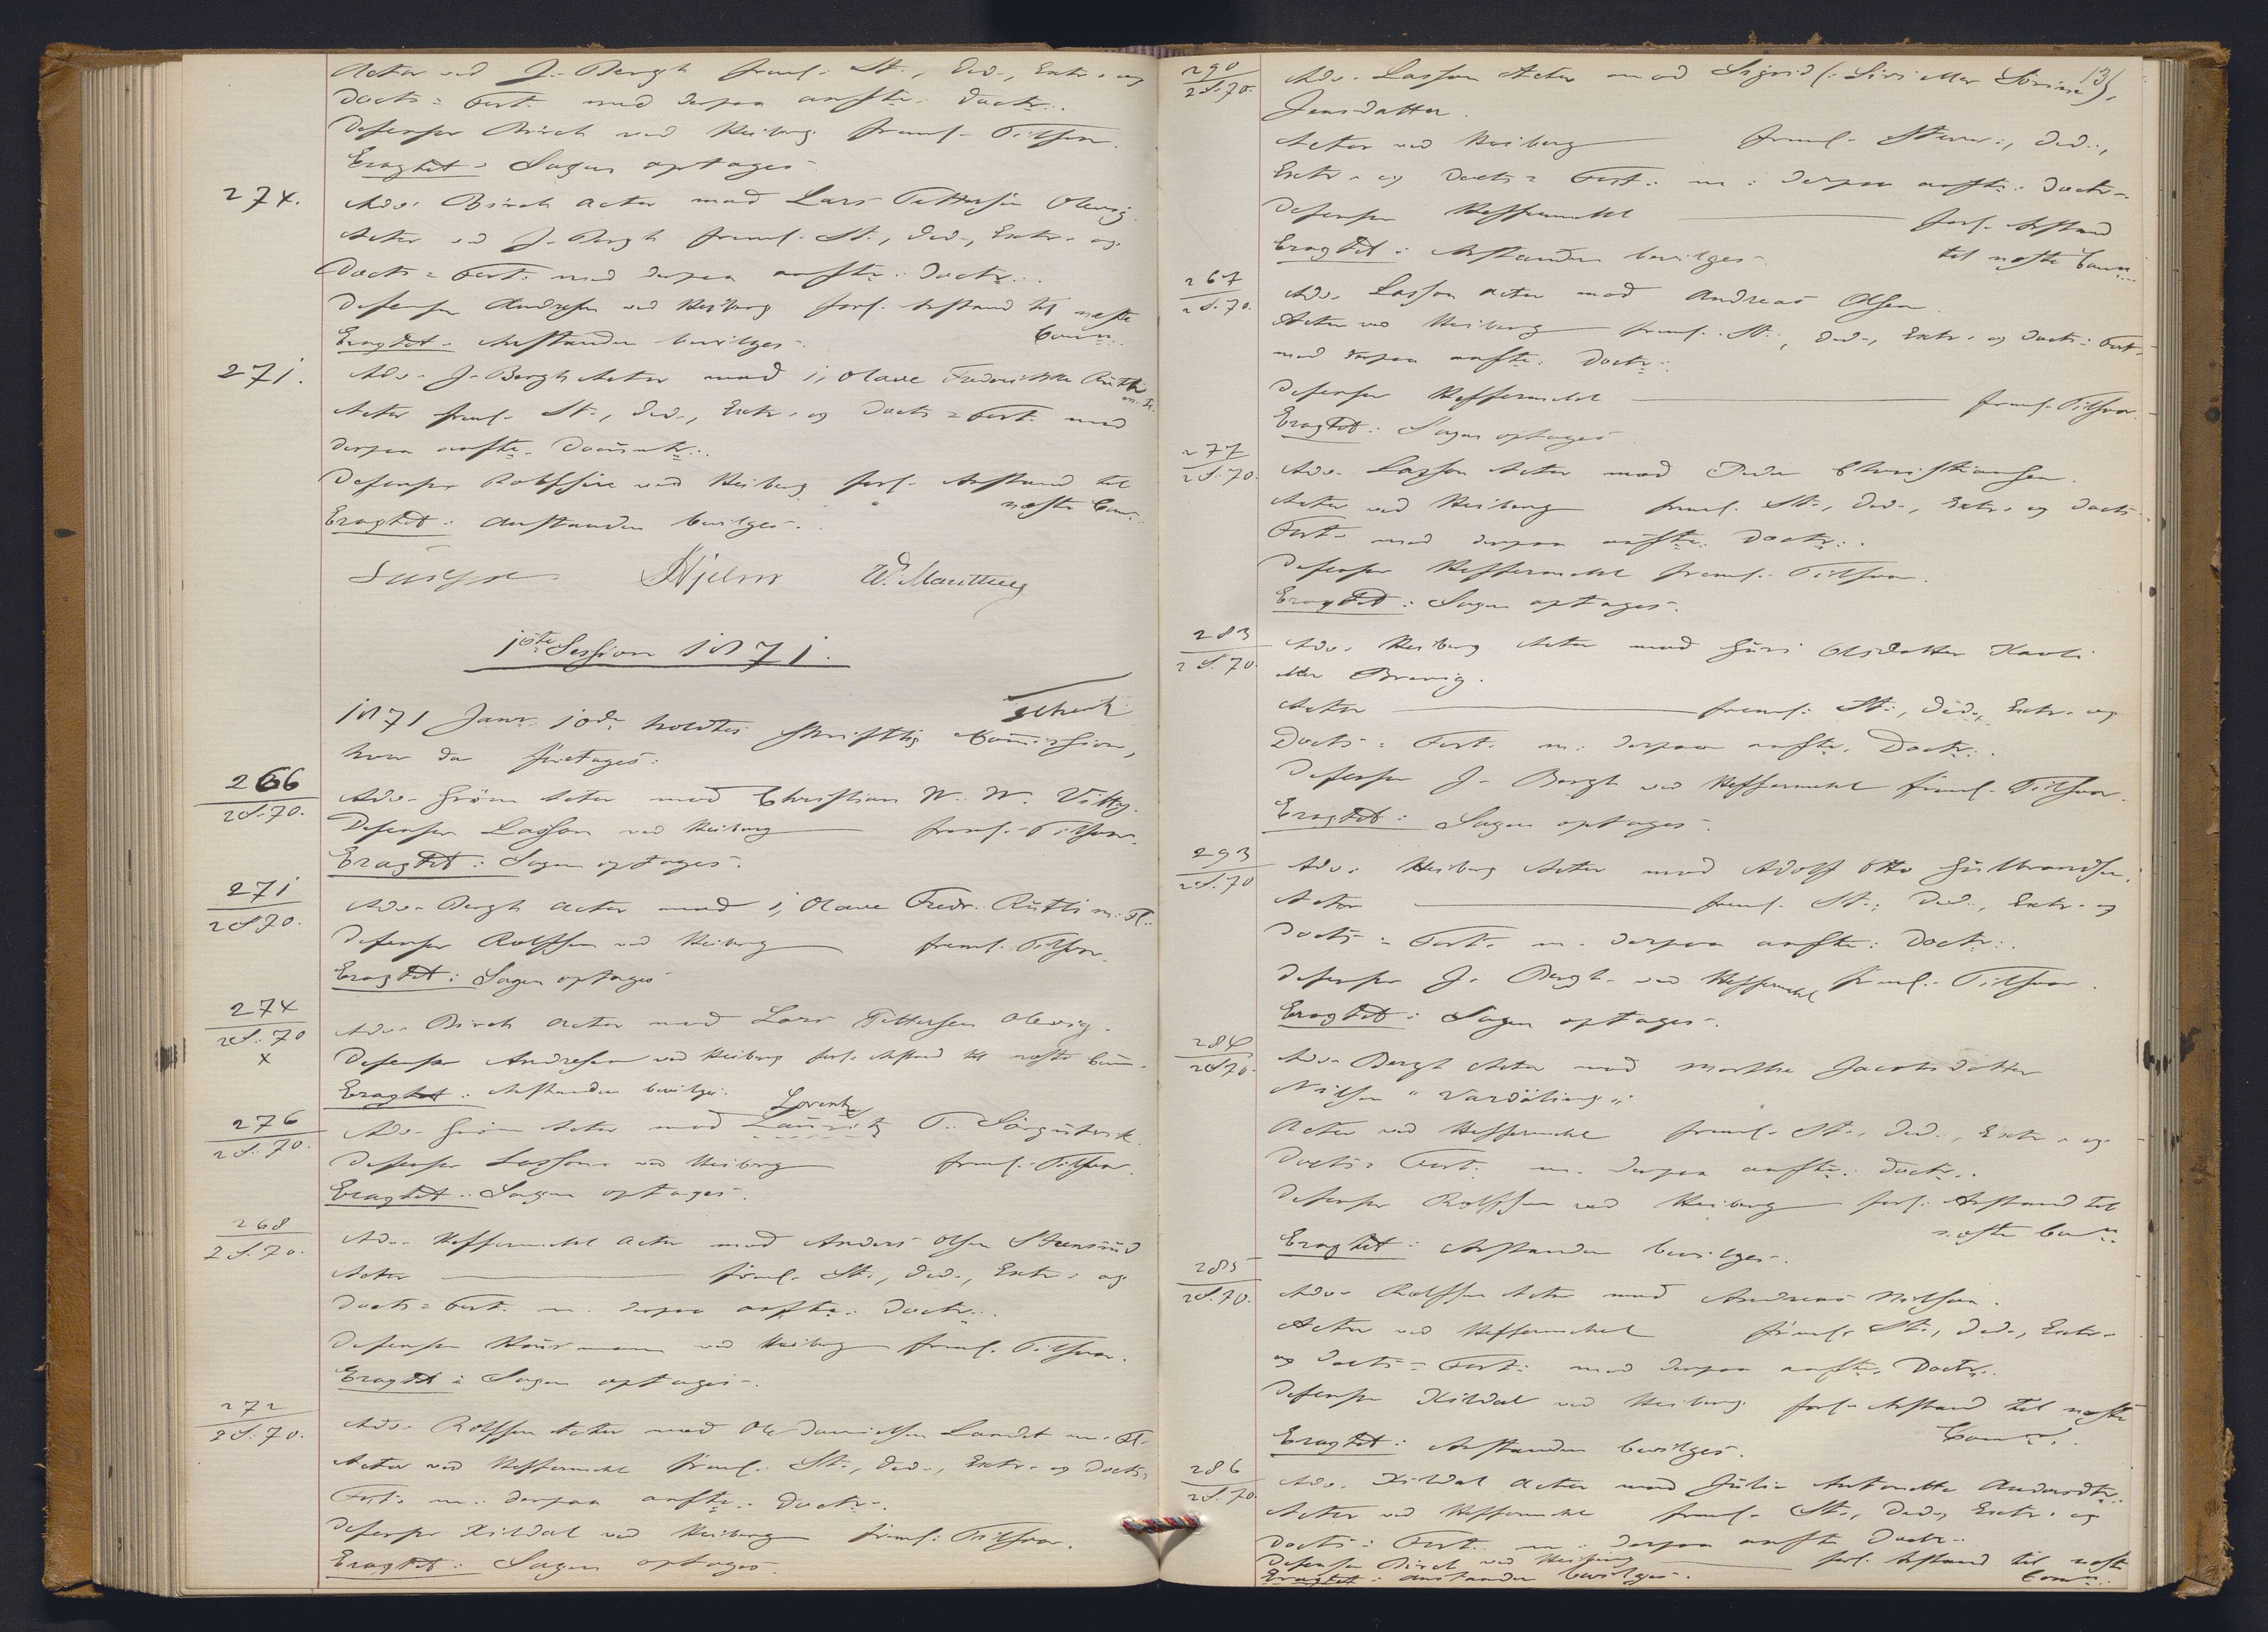 Actor ved J. Bergh freml. St., Ded., Extr. og
Docts = Fort. med derpaa anfte. Doctr.
Defensor Birch ved Heiberg freml. Tilsvar.
Eragtet: Sagen optages.
274. Adv. Birch Actor mod Lars Pettersen Olevig.
Actor ved J. Bergh freml. St., Ded., Extr. og
Docts = Fort. med derpaa anfte. Doctr.
Defensor Andresen ved Heiberg forl. Anstand til næste
Comn.
Eragtet: Anstanden bevilges.
271. Adv. J. Bergh Actor mod 1, Olave Frederikke Rütli
m. Fl.
Actor freml. St., Ded., Extr. og Docts = Fort. med
derpaa anfte. Documtr.
Defensor Rolfsen ved Heiberg forl. Anstand til
næste Com.
Eragtet: Anstanden bevilges.
Hjelm
1ste Session 1871.
1871 Janr. 10de holdtes skriftlig Commission,
hvor da foretages:
266
2 S. 70. Adv. Grøm Actor mod Christian W. W. Vittig.
Defensor Lasson ved Heiberg freml. Tilsvar.
Eragtet: Sagen optages.
271
2 S 70. Adv. Bergh Actor mod 1, Olave Fredr. Rütli m. Fl.
Defensor Rolfsen ved Heiberg freml. Tilsvar.
Eragtet: Sagen optages
274
2 S. 70
x Adv. Birch Actor mod Lars Pettersen Olevig.
Defensor Andresen ved Heiberg forl. Anstand til næste Com.
Eragtet: Anstanden bevilges.
Lorentz
276
2 S. 70. Adv. Grøm Actor mod Lauritz T.
Defensor Lasson ved Heiberg freml. Tilsvar.
Eragtet: Sagen optages.
268
2 S. 70. Adv. Heffermehl Actor mod Anders Olsen
Actor freml. St., Ded., Extr. og
Docts = Fort. m. derpaa anfte. Doctr.
Defensor ved Heiberg freml. Tilsvar.
Eragtet: Sagen optages.
272
2 S. 70. Adv. Rolfsen Actor mod Ole Danielsen Landet m. Fl.
Actor ved Heffermehl freml. St., Ded., Extr. og Docts
Fort. m. derpaa anfte. Doctr.
Defensor Kildal ved Heiberg freml. Tilsvar.
Eragtet: Sagen optages.
131
290
2 S. 70. Adv. Lasson Actor mod Sigrid (: Siri eller Sörine),
Jensdatter.
Actor ved Heiberg freml. Stevn., Ded.,
Extr. og Docts = Fort. m. derpaa anfte. Doctr.
Defensor Heffermehl forl. Anstand
til næste Comn.
Eragtet: Anstanden bevilges.
267
2 S. 70. Adv. Lasson Actor mod Andreas Olsen.
Actor ved Heiberg freml. St., Ded., Extr. og Docts = Fort.
med derpaa anfte. Doctr.
Defensor Heffermehl freml. Tilsvar.
Eragtet: Sagen optages
277
2 S. 70. Adv. Lasson Actor mod Peder Christiansen.
Actor ved Heiberg freml. St., Ded., Extr. og Docts
Fort. med derpaa anfte. Doctr.
Defensor Heffermehl freml. Tilsvar.
Eragtet: Sagen optages.
283
2 S. 70. Adv. Heiberg Actor mod Guri Olsdatter Haoli
eller Brevig.
Actor freml. St., Ded., Extr. og
Docts = Fort. m. derpaa anfte. Doctr.
Defensor J. Bergh ved Heffermehl freml. Tilsvar.
Eragtet: Sagen optages.
293
2 S. 70 Adv. Heiberg Actor mod Adolf Otto Gulbrandsen.
Actor freml. St., Ded., Extr. og
Docts = Fort. m. derpaa anfte. Doctr.
Defensor J. Bergh ved Heffermehl freml. Tilsvar.
Eragtet: Sagen optages.
284
2 S 70. Adv. Bergh Actor mod Marthe Jacobsdatter
Nilsen "Vardöling".
Actor ved Heffermehl freml. St., Ded., Extr. og
Docts = Fort. m. derpaa anfte. Doctr.
Defensor Rolfsen ved Heiberg forl. Anstand til
næste Comn.
Eragtet: Anstanden bevilges.
285
2 S. 70. Adv. Rolfsen Actor mod Andreas Nilsen.
Actor ved Heffermehl freml. St., Ded., Extr.
og Docts = Fort. med derpaa anfte. Doctr.
Defensor Kildal ved Heiberg forl. Anstand til næste
Comn.
Eragtet: Anstanden bevilges.
286
2 S. 70. Adv. Kildal Actor mod Julie Antonette Andersdtr.
Actor ved Heffermehl freml. St., Ded., Extr. og
Docts = Fort. m. derpaa anfte Doctr.
Defensor Birch ved Heiberg forl. Anstand til næste
Comn.
Eragtet: Anstanden bevilges.